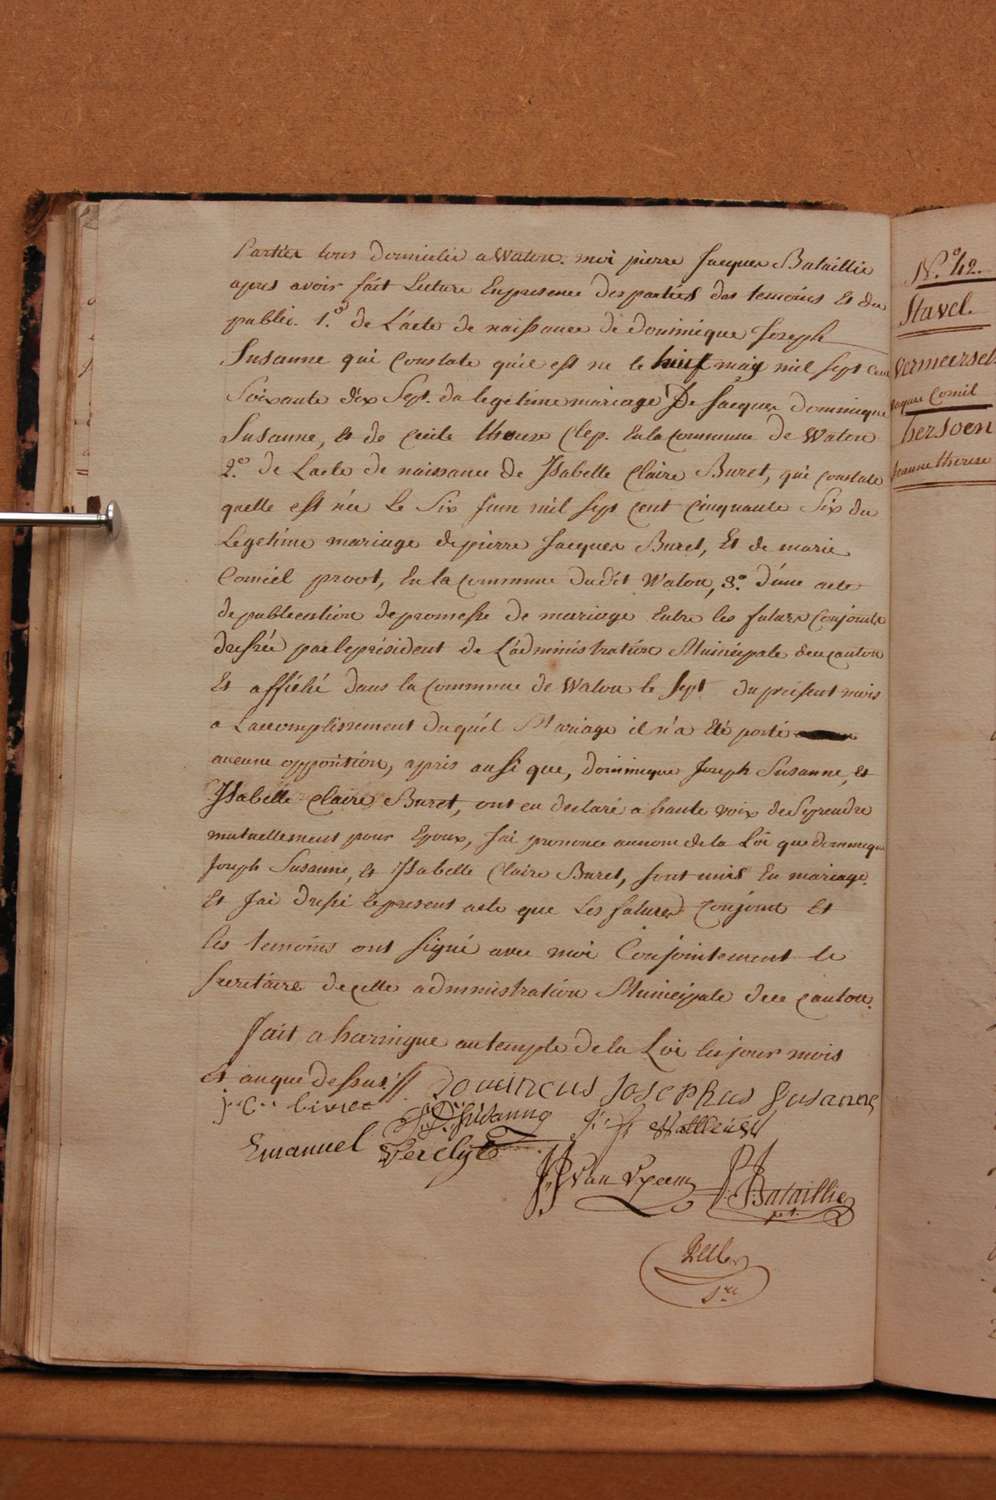 Parties tous domicilié a Watou. moi pierre Jacques Bataillie
apres avoir fait Lecture Enpresence desparties des temoins Et du
public. 1.o de L'acte de naissance de dominique Joseph
Susanne qui Constate qu'il est ne le huit may mil sept Cent
Soixante dix Sept. du legetime mariage De Jacques dominique
Susanne, Et de Cecile therese Clep. En la Commune de Watou
2.o de Lacte de naissance de Isabelle Claire Buret, qui Constate
quelle est née Le Six juin mil sept cent Cinquante Six du
Legetime mariage de pierre Jacques Buret, Et de marie
Corniel proot, En la Commune dudit Watou, 3.o d'une acte
de publication de promesse de mariage Entre les futurs Conjoints
dressée par le président de L'administration Municipale de ce canton
Et affiché dans la Commune de Watou le Sept du présent mois
a Laccomplissement duquel Mariage il n'a Eté porté
aucune opposition, apris ausi que, dominique Joseph Susanne, Et
Isabelle Claire Buret, ont eu declaré a haute voix de Seprendre
mutuellement pour Epoux, J'ai prononce au nom de la Loi que dominique
Joseph Susanne, Et Isabelle Claire Buret, sont unis En mariage.
Et Jai dressé le present acte que Les futures Conjoint Et
les temoins ont signé avec moi Conjointement le
Secretaire de cette administration Municipale de ce canton.
fait a haringue au temple de la Loi les jour mois
Et an que dessus
Dominicus Josephus Susanne
j: C: livree
Susanne
Emanuel Verclyte
J J Van Uxeem
P J Bataillie
pt.
Sre
N.o 42.
Stavel.
Vermeersch
Jaques Cornil
hersoen
Jeanne therese